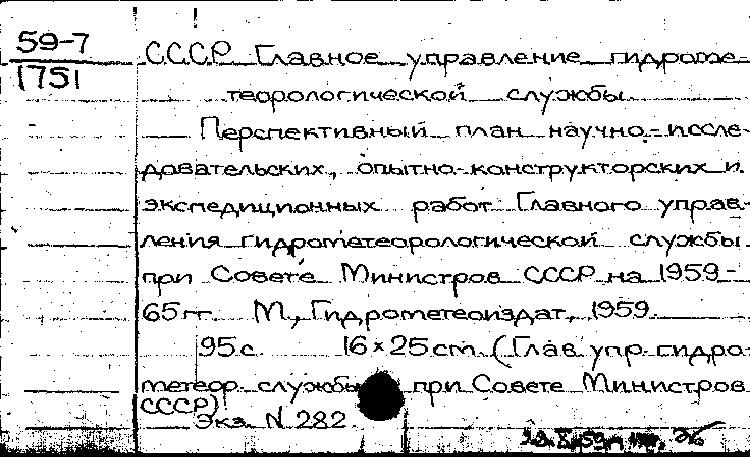 59-7
1751
СССР Главное управление гидроме-
теорологической службы
Перспективный план научно-иссле-
довательских, опытно-конструкторских и
экспедиционных работ Главного управ-
ления гидрометеорологической службы
при Совете Министров СССР на 1959-
65 гг. М., Гидрометеоиздат, 1959.
95 с. 16×25 см. (Глав. упр. гидро-
метеор. службы при Совете Министров
СССР)
Экз. N 282.